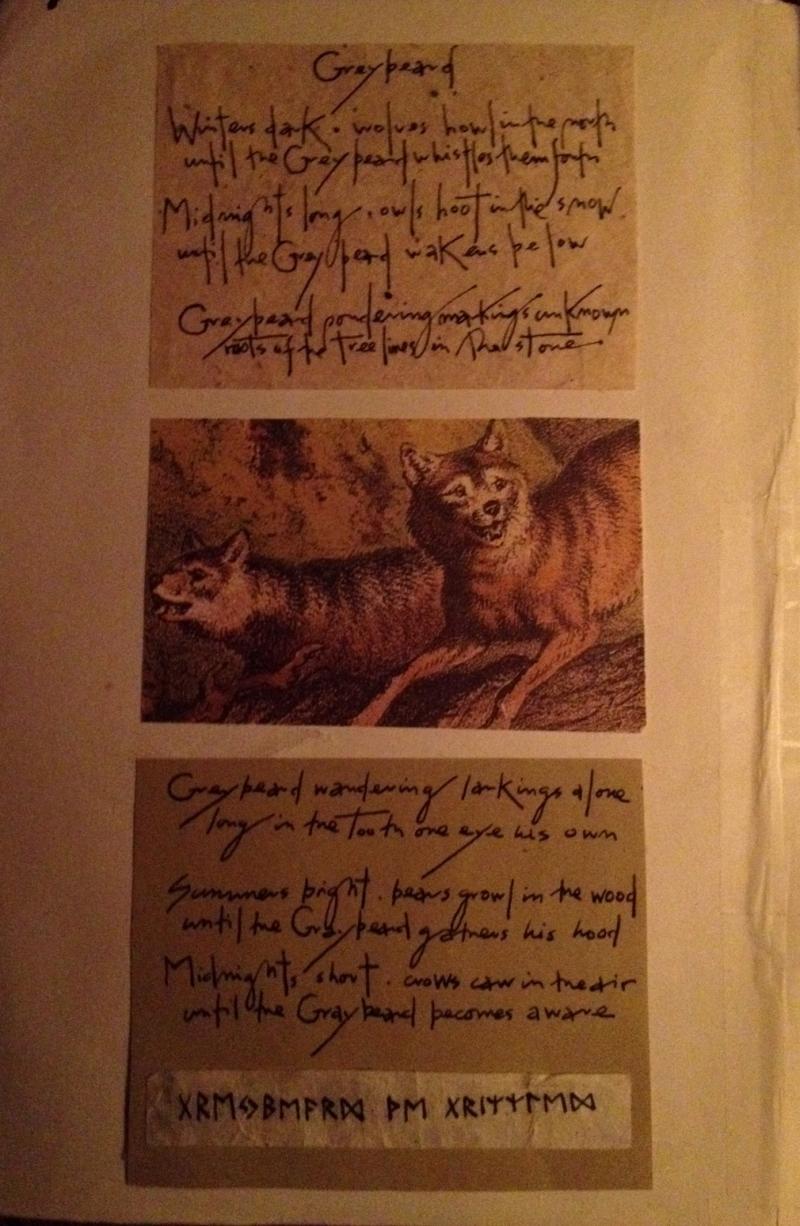 Greybeard
Winters dark . wolves howl in the north
until the Greybeard whistles them forth
Midnights long . owls hoot in the snow
until the Greybeard wakens below
Greybeard pondering makings unknown
roots of the tree lines in the stone
Greybeard wandering larkings alone
long in the tooth one eye his own
Summers bright . bears growl in the wood
until the Graybeard gathers his hood
Midnights short . crows caw in the air
until the Graybeard becomes aware
ᚷᚱᛖᛃᛒᛖᚨᚱᛞ ᚦᛖ ᚷᚱᛁᛉᛉᛚᛖᛞ